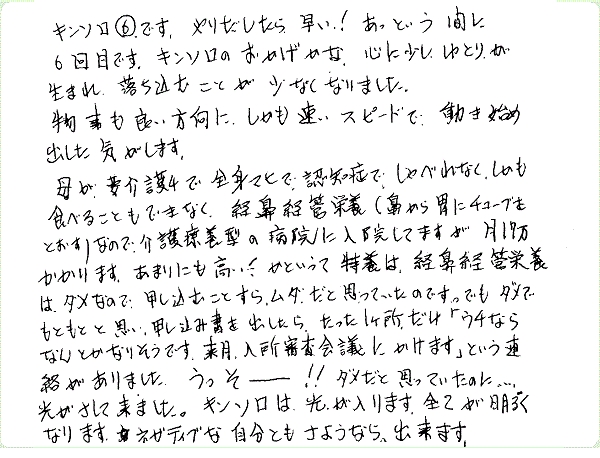 キンソロ⑥です。やりだしたら早い！あっという間に
6回目です。キンソロのおかげかな、心に少しゆとりが
生まれ、落ち込むことが少なくなりました。
物事も良い方向に、しかも速いスピードで、動き始め
出した気がします。
母が、要介護4で全身マヒで、認知症で、しゃべれなく、しかも
食べることもできなく、経鼻経管栄養（鼻から胃にチューブを
とおす）なので、介護療養型の病院に入院してますが月17万
かかります。あまりにも高い！かといって特養は、経鼻経管栄養
は、ダメなので、申し込むことすら、ムダだと思っていたのです。でもダメで
もともとと思い、申し込み書を出したら、たった1ヶ所だけ「ウチなら
なんとかなりそうです。来月、入所審査会議にかけます」という連
絡がありました。うっそ――!!ダメだと思っていたのに…、
光がさして来ました。キンソロは、光が入ります。全てが明るく
なります。ネガティブな自分ともさようなら、出来ます。